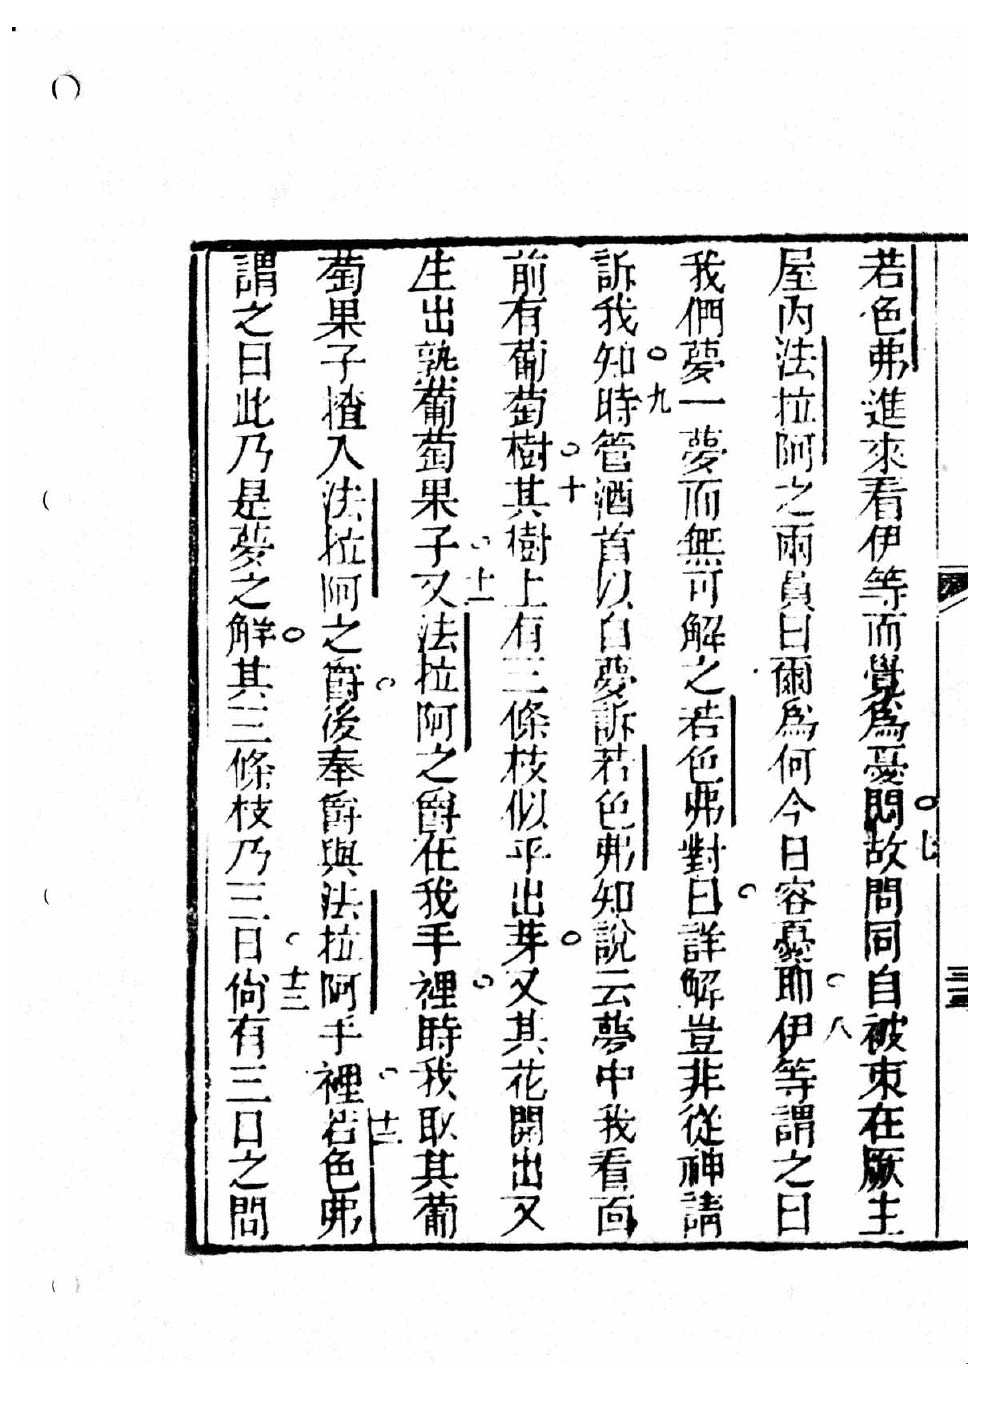 若色弗進來看伊等而覺為憂悶○七故問同自被束在厥主
屋內法拉阿之兩員曰爾為何今日容憂耶○八伊等謂之曰
我們夢一夢而無可解之若色弗對曰○詳解豈非從神請
訴我知○九時管酒首以自夢訴若色弗知說云夢中我看面
前有葡萄樹○十其樹上有三條枝似乎出芽○又其花開出又
生出熟葡萄果子○十一又法拉阿之爵在我手裡○時我取其葡
萄果子揸入法拉阿之爵○後奉爵與法拉阿手裡○十二若色弗
謂之曰此乃是夢之解○其三條枝乃三日○十三尙有三日之間
三